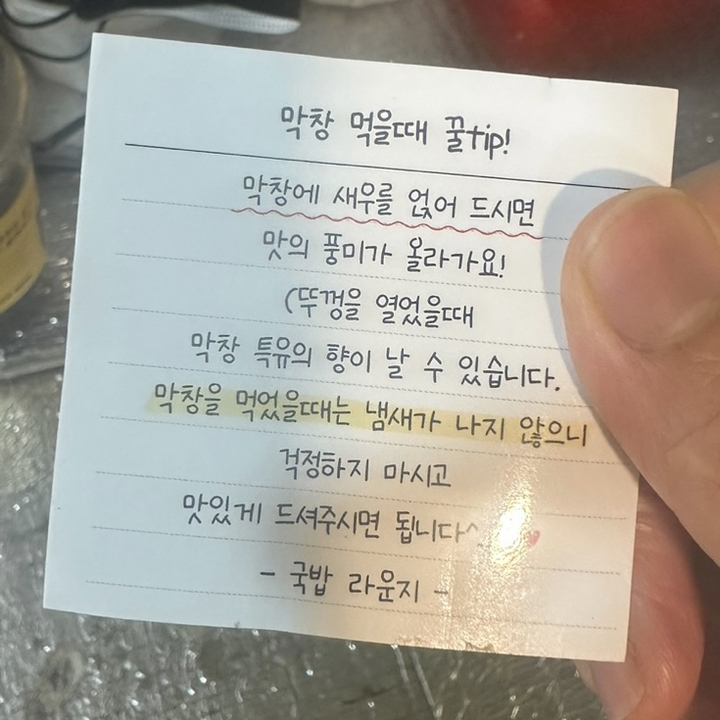 막창 먹을때 꿀tip!
막창에 새우를 얹어 드시면
맛의 풍미가 올라가요!
(뚜껑을 열었을때
막창 특유의 향이 날 수 있습니다.
막창을 먹었을때는 냄새가 나지 않으니
걱정하지 마시고
맛있게 드셔주시면 됩니다^
- 국밥 라운지 -